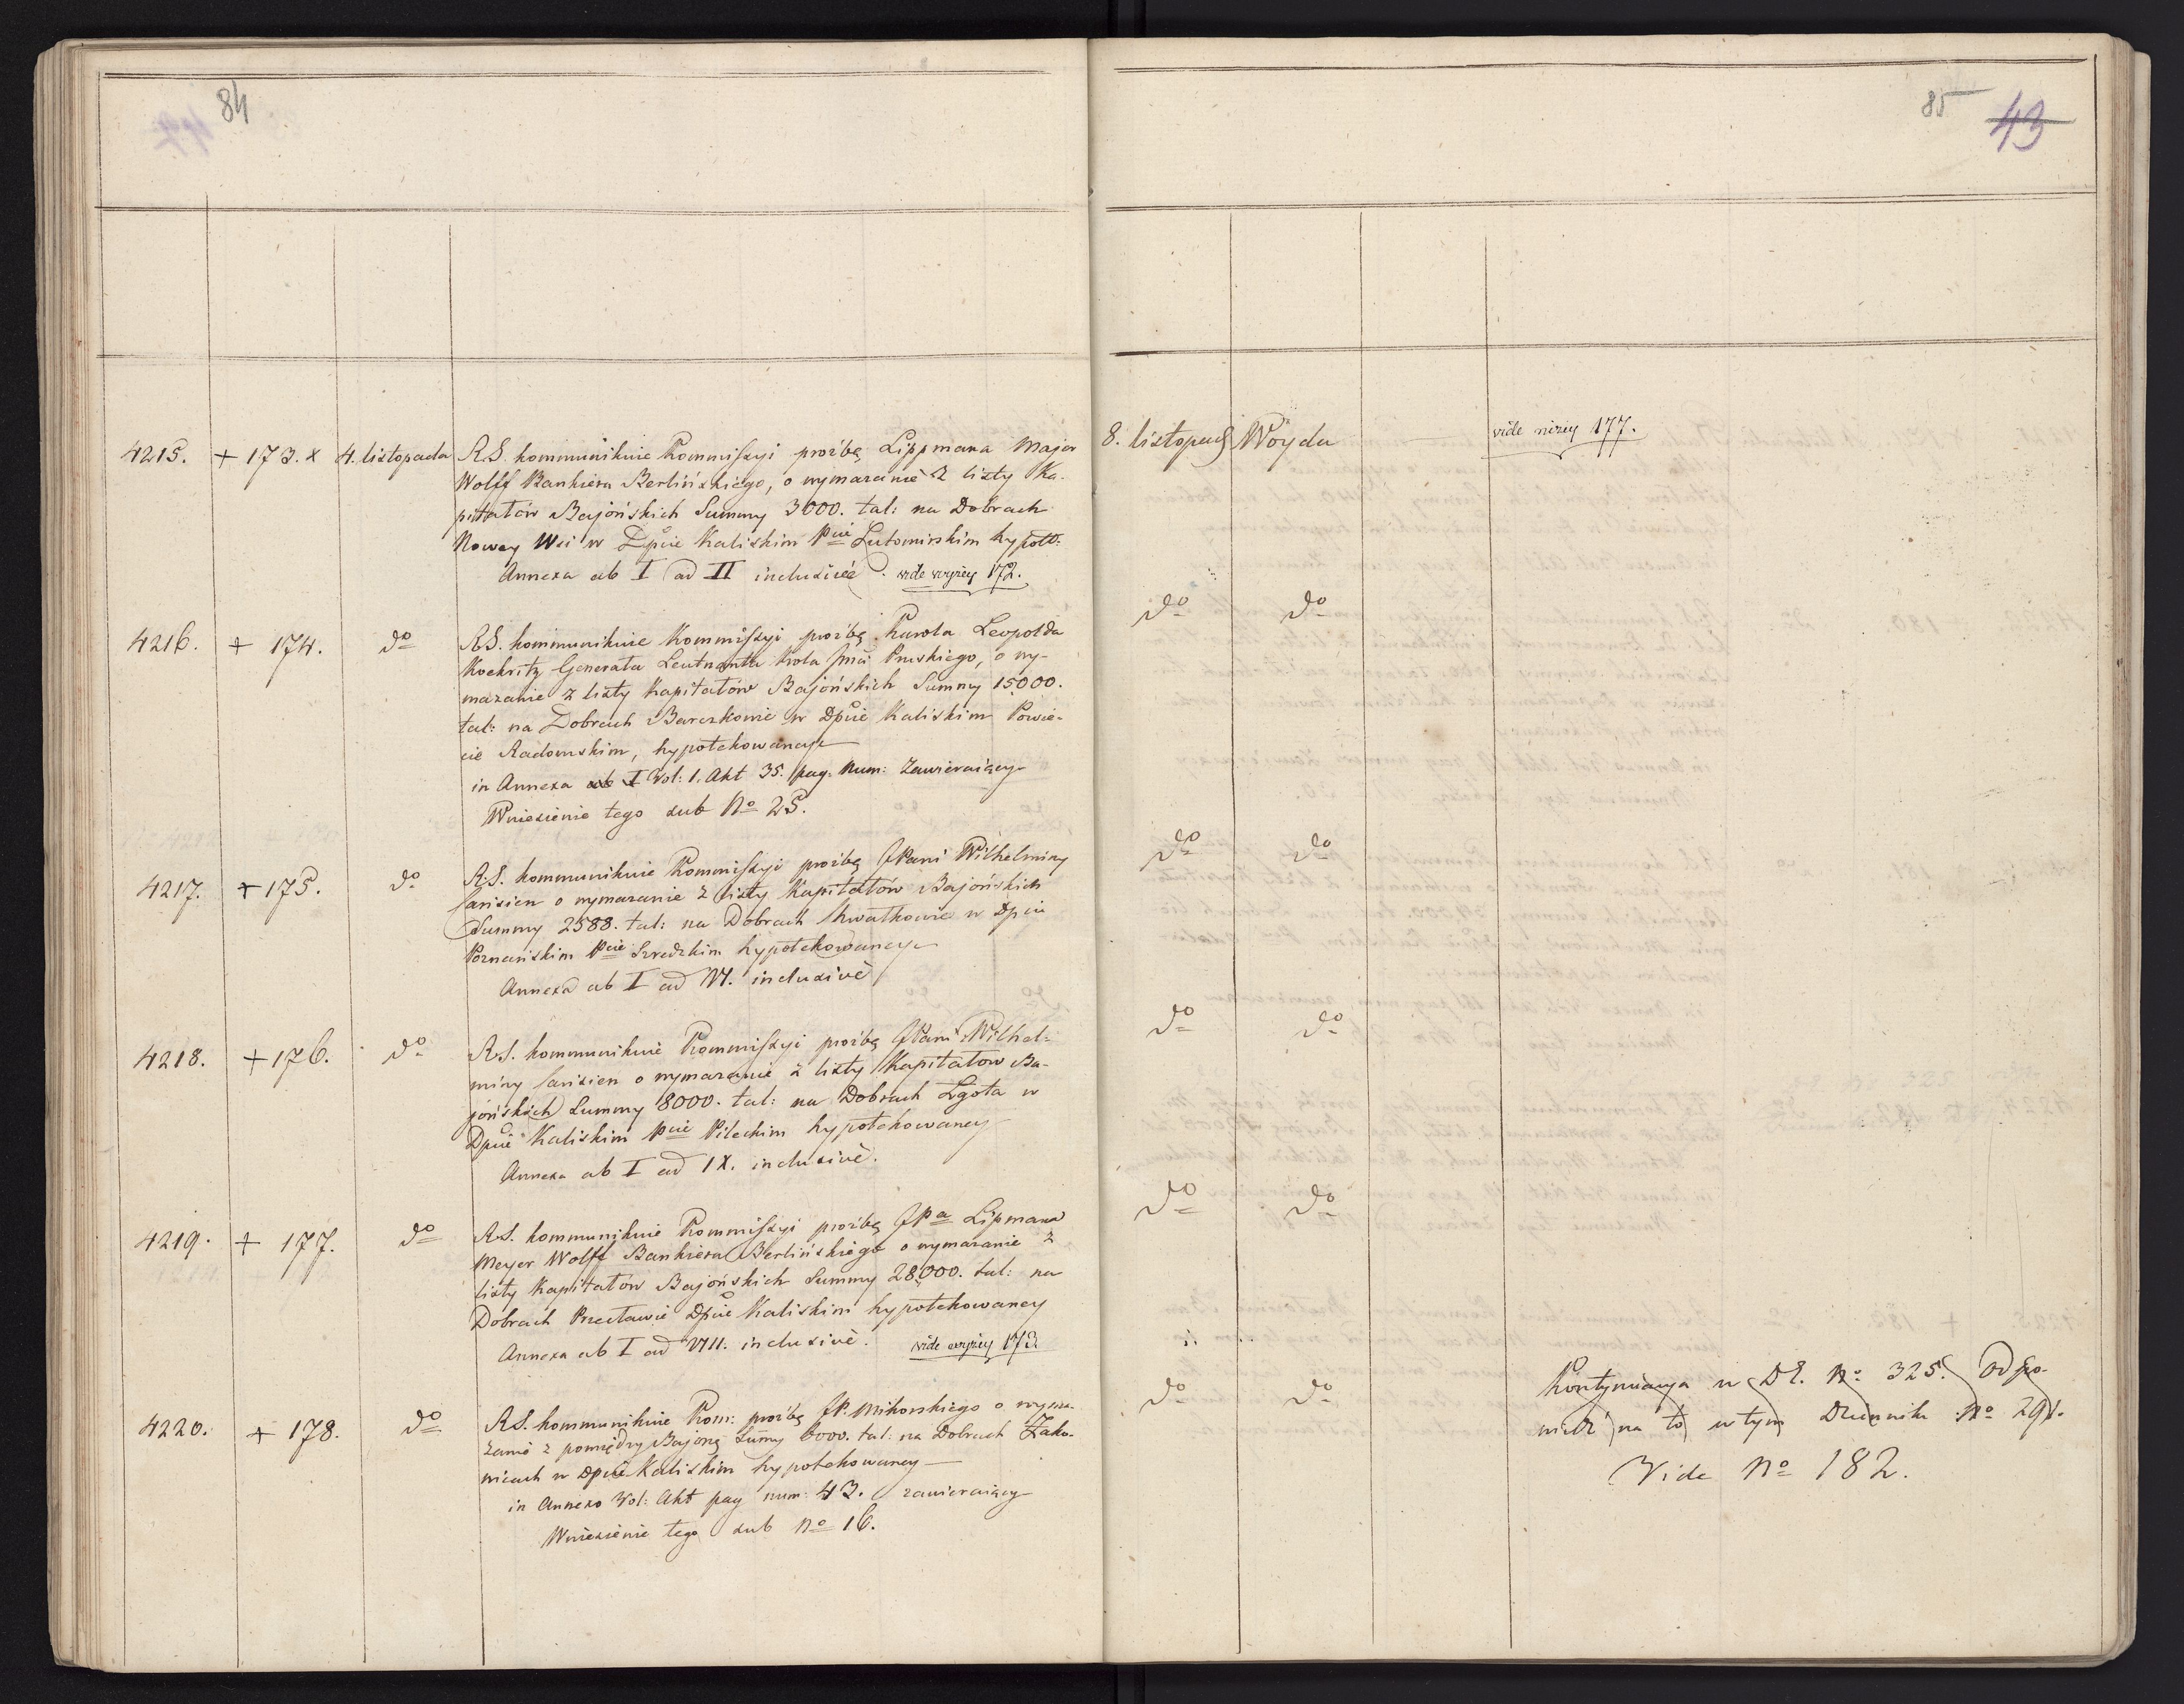 84
85 43
4215. + 173. x 4. listopada R.S. kommunikuie Kommissyi proźbę Lippmana Major
Wolff Bankiera Berlińskiego, o wymazanie z listy Ka-
pitałów Bajońskich Summy 3000. tal: na Dobrach
Nowey Wsi w Dpcie Kaliskim Pcie Lutomirskim hypot:
Annexa ab I ad II inclusive. vide wyżey 172.
8. listopad Woyda vide niżey 177.
4216. + 174. do R.S. kommunikuie Kommissyi proźbę Karola Leopolda
Koekritz Generała Leutnanta Króla Jmci Pruskiego, o wy-
mazanie z listy Kapitałów Bajońskich Summy 15000.
tal: na Dobrach Barczkowie w Dpcie Kaliskim Powie-
cie Radomskim, hypotekowaney
in Annexa ab I Vol: 1. Akt 35. pag. num: Zawieraiący
Wniesienie tego sub No 25.
do do
4217. + 175. do R.S. kommunikuie Kommissyi proźbę JPani Wilhelminy
o wymazanie z listy Kapitałów Bajońskich
Summy 2588. tal: na Dobrach Kwatkowie w Dpcie
Poznańskim Pcie Szredzkim hypotekowaney
Annexa ab I ad VI. inclusive
do do
4218. + 176. do R.S. kommunikuie Kommissyi proźbę JPani Wilhel-
miny o wymazanie z listy Kapitałow Ba-
jońskich Summy 8000. tal: na Dobrach Lgota w
Dpcie Kaliskim Pcie Pileckim hypotekowaney
Annexa ab I ad IX. inclusive.
do do
4219. + 177. do R.S. kommunikuie Kommissyi proźbę JPa Lipmana
Meyer Wolff Bankiera Berlińskiego o wymazanie z
listy Kapitałów Bajońskich Summy 28,000. tal: na
Dobrach Przecławie Dpcie Kaliskim hypotekowaney
Annexa ab I ad VIII. inclusive. vide wyżey 173.
do do
4220. + 178. do R.S. kommunikuie Kom: proźbę JP. Mikorskiego o wyma-
zanie z pomiędzy Bajoną Summy 6000. tal: na Dobrach Zako-
wicach w Dpcie Kaliskim hypotekowaney
in Annexo Vol: Akt pag num: 43. zawieraiący
Wniesienie tego sub No 16.
do do
Kontynuacya w Dz. No 325. Odpo-
wiedź na to w tym Dzienniku No 291.
Vide No 182.